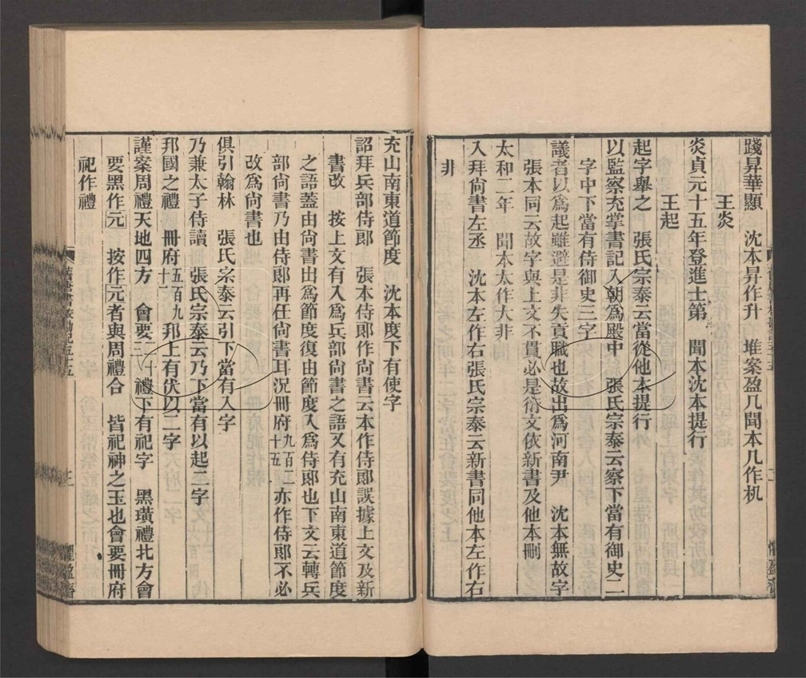 踐昇華顯　沈本昇作升　堆案盈几聞本几作机
王炎
炎貞元十五年登進士第　聞本沈本提行
王起
起字舉之　張氏宗泰云當從他本提行
以監察充掌書記入朝爲殿中　張氏宗泰云察下當有御史二
字中下當有侍御史三字
議者以爲起雖避是非失貢職也故出爲河南尹　沈本無故字
張本同云故字與上文不貫必是衍文依新書及他本刪
太和二年　聞本太作大非
入拜尙書左丞　沈本左作右張氏宗泰云新書同他本左作右
非
充山南東道節度　沈本度下有使字
詔拜兵部侍郎　張本侍郎作尙書云本作侍郎誤據上文及新
書改　按上文有入爲兵部尙書之語又有充山南東道節度
之語蓋由尙書出爲節度復由節度入爲侍郎也下文云轉兵
部尙書乃由侍郎再任尙書耳況冊府九百二十五亦作侍郎不必
改爲尙書也
俱引翰林　張氏宗泰云引下當有入字
乃兼太子侍讀　張氏宗泰云乃下當有以起二字
邦國之禮　冊府五百九十二邦上有伏以二字
謹案周禮天地四方　會要二十禮下有祀字　黑璜禮北方會
要黑作元　按作元者與周禮合　皆祀神之玉也會要冊府
祀作禮
懼盈齋